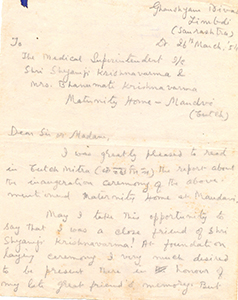 Ghanshyam Nivas
Limbdi
(Saurashtra)
Dt. 26th March, '56
To
The Medical Superintendent I/c
Shri Shyamji Krishnavarma &
Mrs. Bhanumati Krishnavarma
Maternity Home – Mandvi
(Cutch)
Dear Sir or Madam,
I was greatly pleased to read
in Cutch Mitra the report about
the inauguration ceremony of the above
mentioned Maternity Home at Mandavi.
May I take this opportunity to
say that I was a close friend of Shri
Shyamji Krishnavarma! At foundation
laying ceremony I very much desired
to be present there in honour of
my late great friend's memory. But